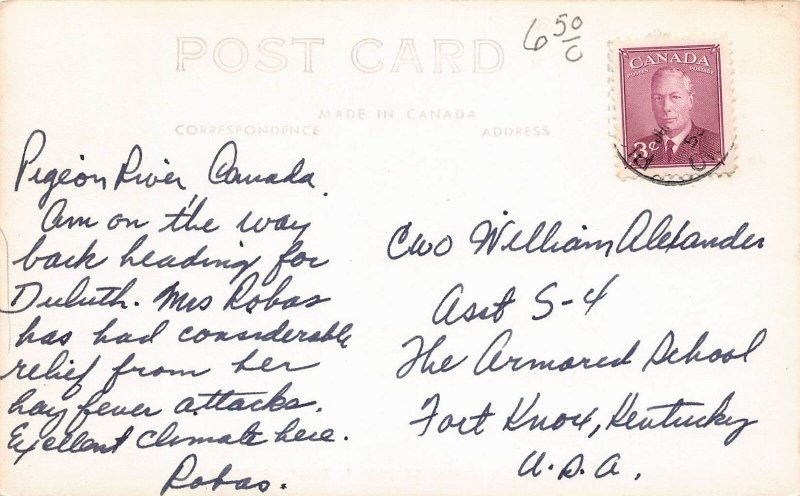 POST CARD
6 50/0
CANADA
POSTES POSTAGE
3¢
MADE IN CANADA
CORRESPONDENCE
ADDRESS
Pigeon River, Canada.
Am on the way
back heading for
Duluth. Mrs Robas
has had considerable
relief from her
hay fever attacks.
Exellent climate here.
Robas.
CWO William Alexander
Asst S-4
The Armored School
Fort Knox, Kentucky
U.S.A.